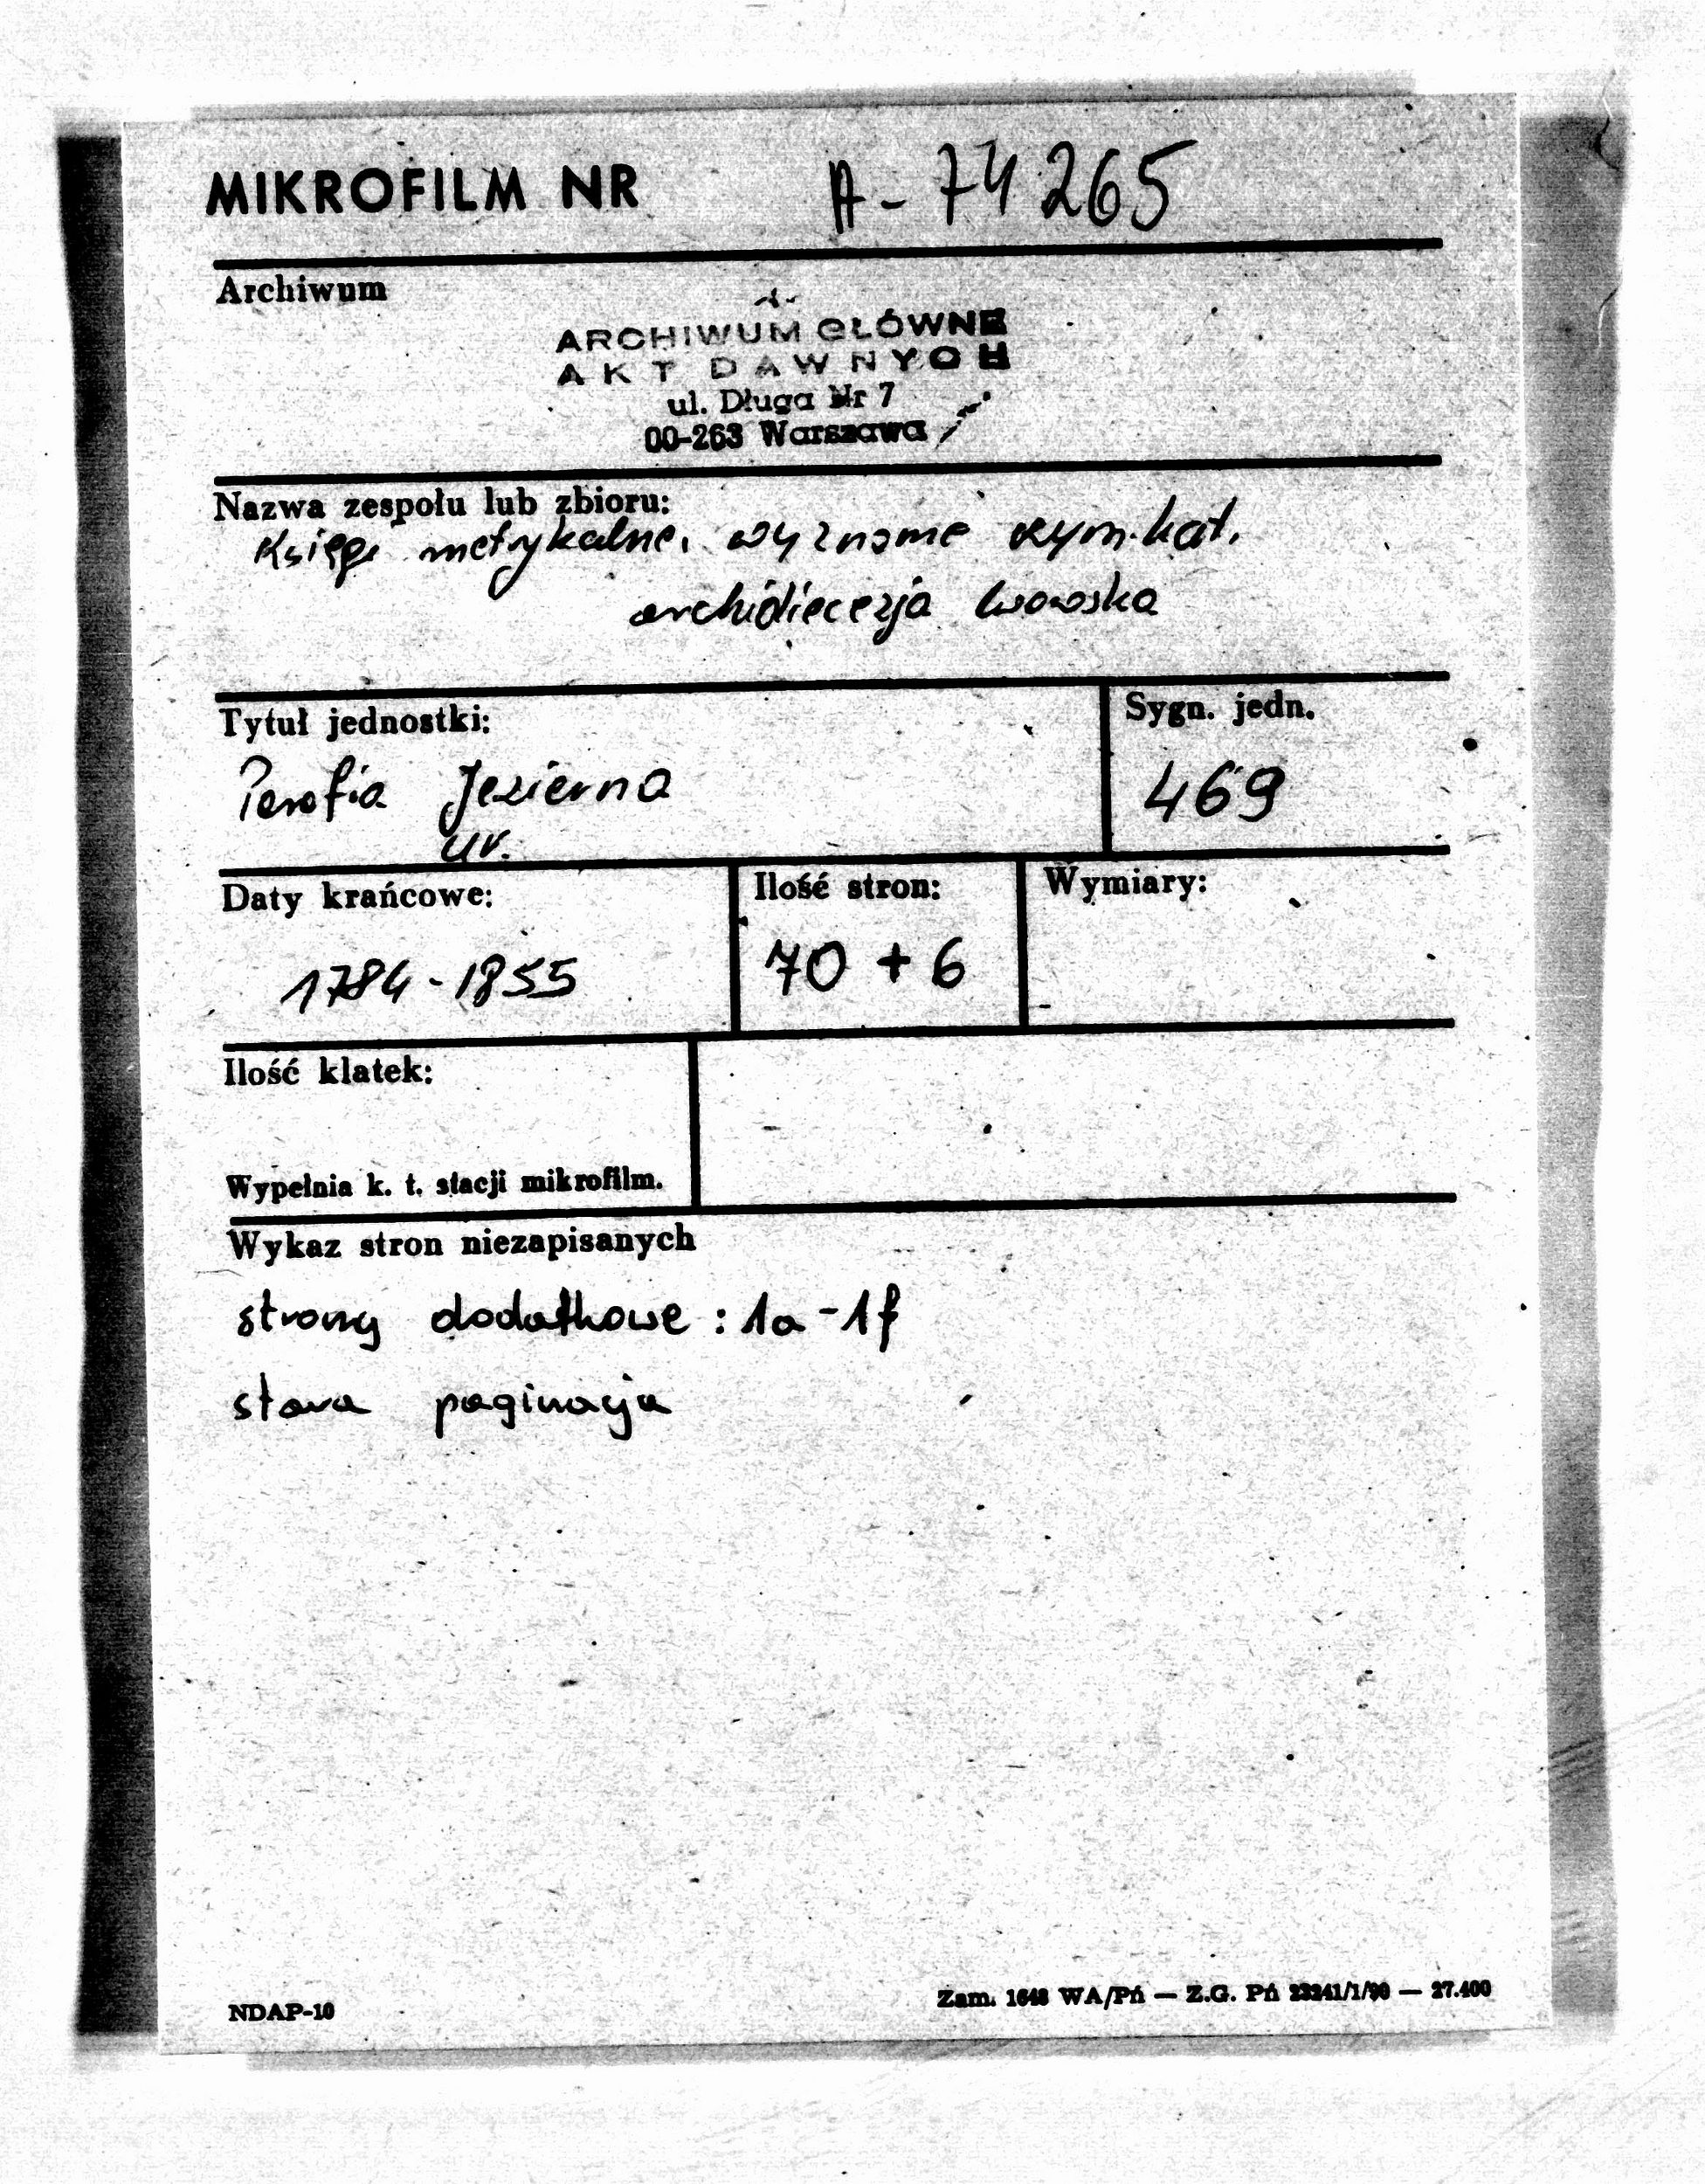 MIKROFILM NR A-74265
Archiwum
ARCHIWUM GŁÓWNE
AKT DAWNYCH
ul. Długa Nr 7
00-263 Warszawa
Nazwa zespołu lub zbioru:
Księgi metrykalne, wyznanie rzym.kat.
archidiecezja lwowska
Tytuł jednostki: Sygn. jedn.
Parafia Jezierna 469
ur.
Daty krańcowe: Ilość stron: Wymiary:
1784-1855 70 + 6
Ilość klatek:
Wypełnia k. t. stacji mikrofilm.
Wykaz stron niezapisanych
strony dodatkowe : 1a-1f
stara paginacja
NDAP-10 Zam. 1648 WA/Pń — Z.G. Pń 23241/1/90 — 27.400